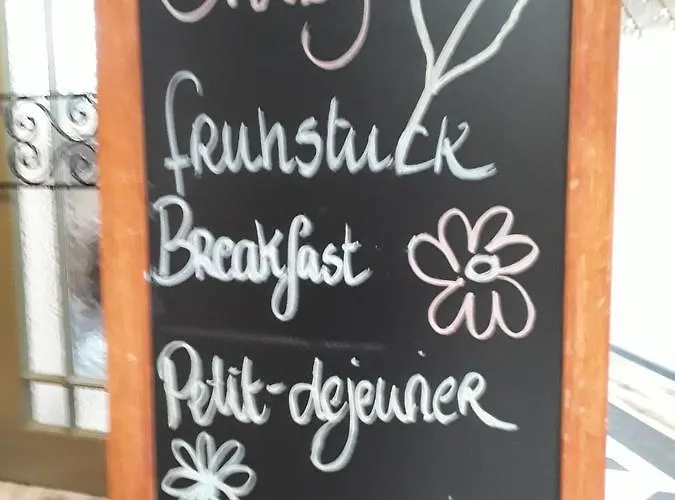 fruhstuck
Breakfast
Petit-dejeuner